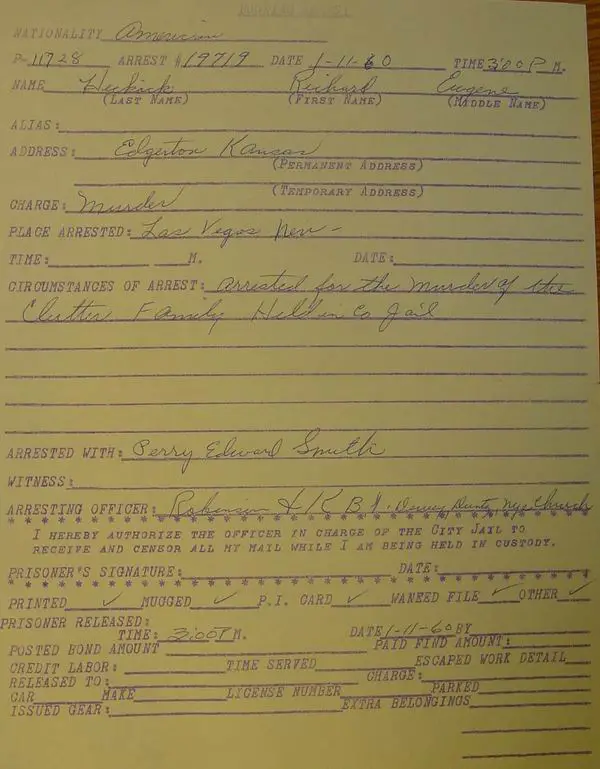 BOOKING REPORT
NATIONALITY American
P- 11728 ARREST # 19719 DATE 1-11-60 TIME 3:00 P M.
NAME Hickock Richard Eugene
(LAST NAME) (FIRST NAME) (MIDDLE NAME)
ALIAS:
ADDRESS: Edgerton Kansas
(PERMANENT ADDRESS)
(TEMPORARY ADDRESS)
CHARGE: Murder
PLACE ARRESTED: Las Vegas Nev -
TIME: M. DATE:
CIRCUMSTANCES OF ARREST: Arrested for the murder of the
Clutter Family Held in Co Jail
ARRESTED WITH: Perry Edward Smith
WITNESS:
ARRESTING OFFICER: Robinson & K B I. Dewey Duntz Nye Church
* * * * * * * * * * * * * * * * * * * * * * * * * * * * * * * * * * * * * * * *
I HEREBY AUTHORIZE THE OFFICER IN CHARGE OF THE CITY JAIL TO
RECEIVE AND CENSOR ALL MY MAIL WHILE I AM BEING HELD IN CUSTODY.
PRISONER'S SIGNATURE: DATE:
* * * * * * * * * * * * * * * * * * * * * * * * * * * * * * * * * * * * * * * *
PRINTED ✓ MUGGED ✓ F.I. CARD ✓ WANEED FILE ✓ OTHER ✓
PRISONER RELEASED:
TIME: 3:00P M. DATE 1-11-60 BY
POSTED BOND AMOUNT PAID FIND AMOUNT:
CREDIT LABOR: TIME SERVED ESCAPED WORK DETAIL
RELEASED TO: CHARGE:
CAR MAKE LICENSE NUMBER PARKED
ISSUED GEAR: EXTRA BELONGINGS